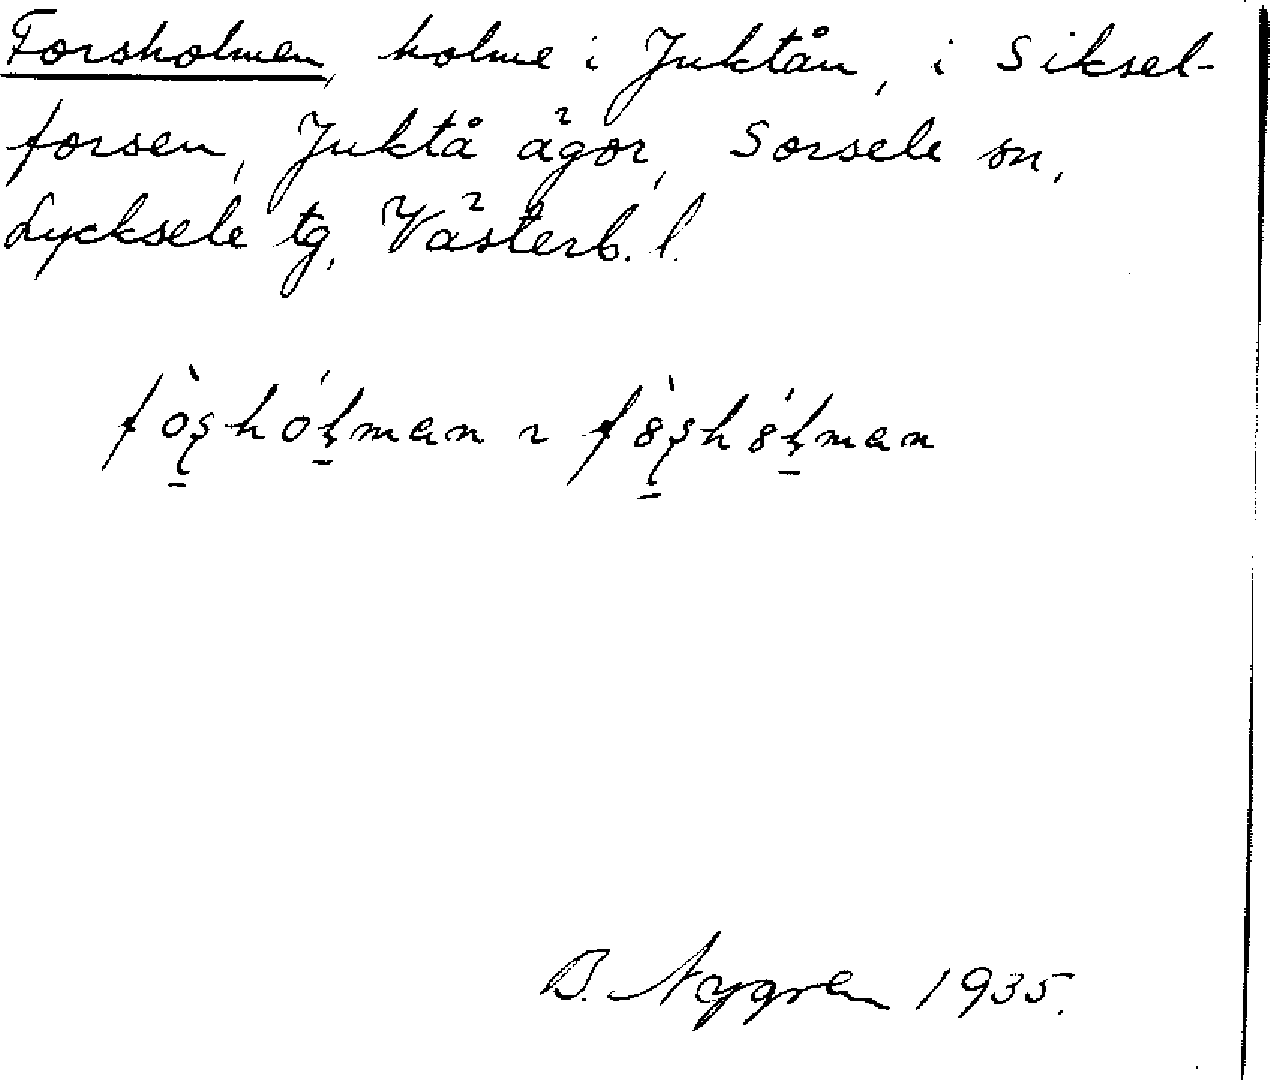 Forsholmen, holme i Juktån, i Siksel-
forsen, Juktå ägor, Sorsele sn,
Lycksele tg, Västerb. l.
fòʂhóɭman ~ fö̀ʂhö́ɭman
B. Nygren 1935.